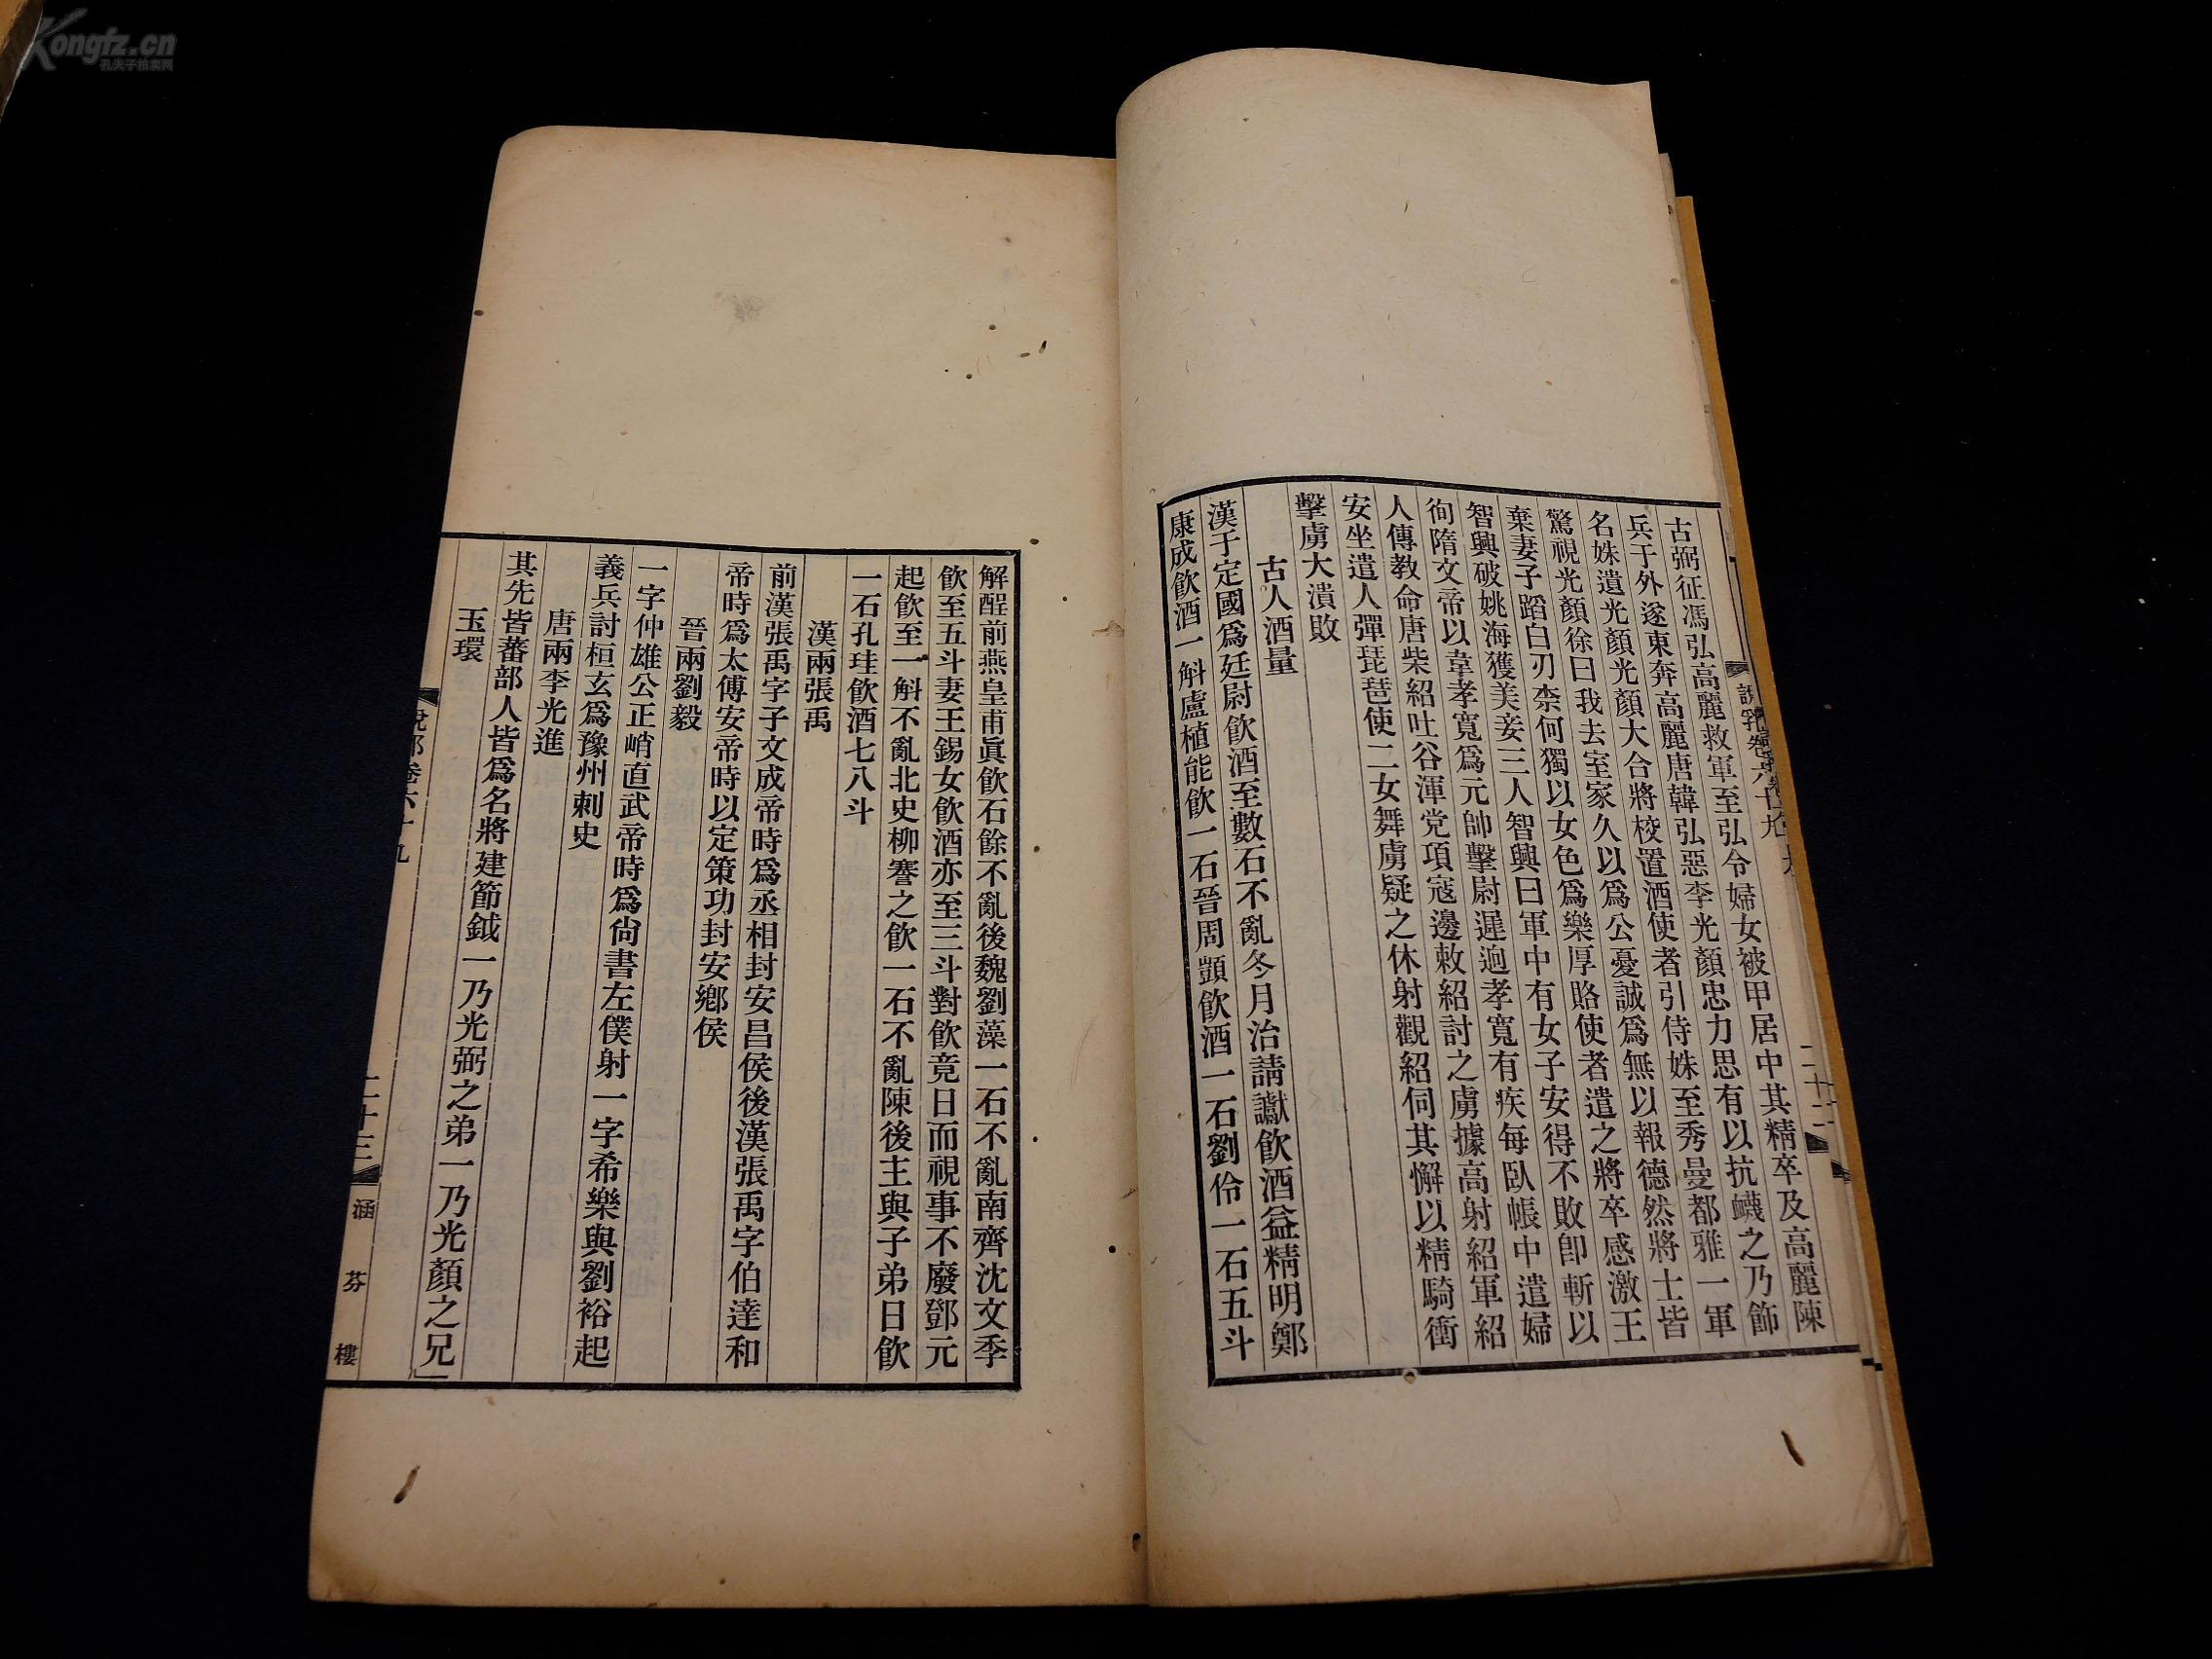 古弼征馮弘高麗救軍至弘令婦女被甲居中其精卒及高麗陳
兵于外遂東奔高麗唐韓弘惡李光顏忠力思有以抗衊之乃飾
名姝遺光顏光顏大合將校置酒使者引侍姝至秀曼都雅一軍
驚視光顏徐曰我去室家久以為公憂誠為無以報德然將士皆
棄妻子蹈白刃柰何獨以女色為樂厚賂使者遣之將卒感激王
智興破姚海獲美妾三人智興曰軍中有女子安得不敗卽斬以
徇隋文帝以韋孝寬為元帥擊尉遲迥孝寬有疾每臥帳中遣婦
人傳教命唐柴紹吐谷渾党項寇邊敕紹討之虜據高射紹軍紹
安坐遣人彈琵琶使二女舞虜疑之休射觀紹伺其懈以精騎衝
擊虜大潰敗
古人酒量
漢于定國為廷尉飲酒至數石不亂冬月治請讞飲酒益精明鄭
康成飲酒一斛盧植能飲一石晉周顗飲酒一石劉伶一石五斗
說郛卷六十九
二十二
解酲前燕皇甫眞飲石餘不亂後魏劉藻一石不亂南齊沈文季
飲至五斗妻王錫女飲酒亦至三斗對飲竟日而視事不廢鄧元
起飲至一斛不亂北史柳謇之飲一石不亂陳後主與子弟日飲
一石孔珪飲酒七八斗
漢兩張禹
前漢張禹字子文成帝時為丞相封安昌侯後漢張禹字伯達和
帝時為太傅安帝時以定策功封安鄉侯
晉兩劉毅
一字仲雄公正峭直武帝時為尙書左僕射一字希樂與劉裕起
義兵討桓玄為豫州刺史
唐兩李光進
其先皆蕃部人皆為名將建節鉞一乃光弼之弟一乃光顏之兄
玉環
說郛卷六十九
二十三
涵芬樓
Kongfz.cn
孔夫子拍卖网